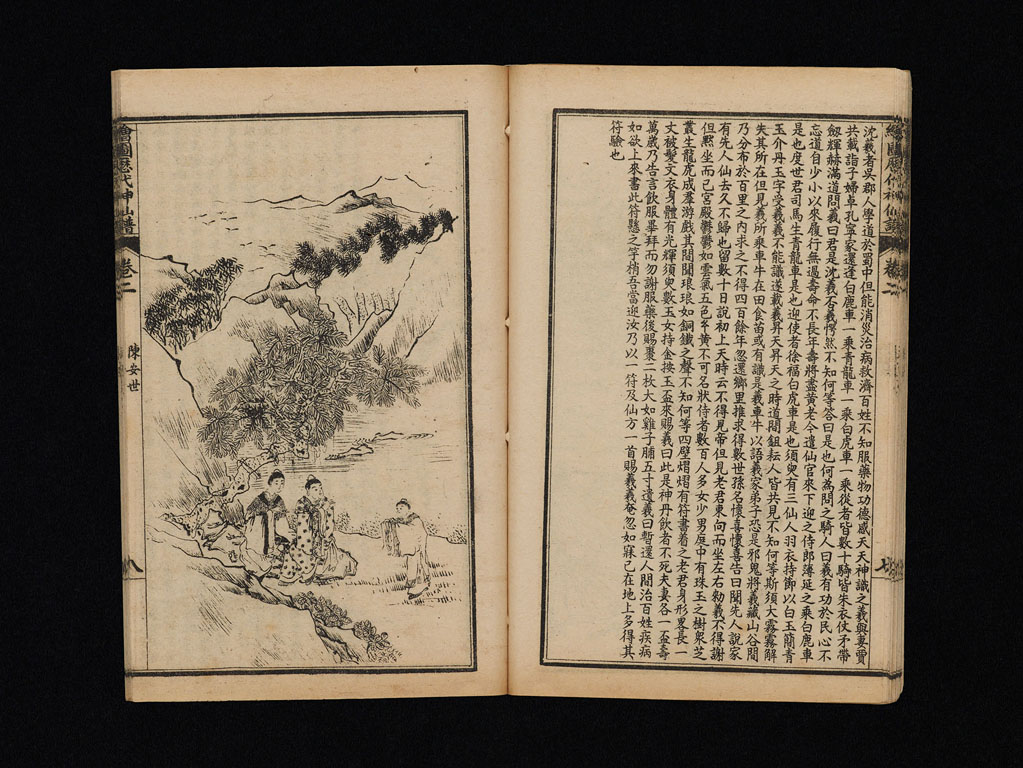 繪圖歷代神仙譜
卷二
沈羲者吳郡人學道於蜀中但能消災治病救濟百姓不知服藥物功德感天天神識之羲與妻賈
共載詣子婦卓孔寧家還逢白鹿車一乘青龍車一乘白虎車一乘從者皆數十騎皆朱衣仗矛帶
劒輝赫滿道問羲曰君是沈羲否羲愕然不知何等答曰是也何為問之騎人曰羲有功於民心不
忘道自少小以來履行無過壽命不長年壽將盡黃老今遣仙官來下迎之侍郎薄延之乘白鹿車
是也度世君司馬生青龍車是也迎使者徐福白虎車是也須臾有三仙人羽衣持節以白玉簡青
玉介丹玉字受羲羲不能識遂載羲昇天昇天之時道間鉏耘人皆共見不知何等斯須大霧霧解
失其所在但見羲所乘車牛在田食苗或有識是羲車牛以語羲家弟子恐是邪鬼將羲藏山谷間
乃分布於百里之內求之不得四百餘年忽還鄉里推求得數世孫名懷喜懷喜告曰聞先人說家
有先人仙去久不歸也留數十日說初上天時云不得見帝但見老君東向而坐左右勑羲不得謝
但默坐而已宮殿鬱鬱如雲氣五色玄黃不可名狀侍者數百人多女少男庭中有珠玉之樹衆芝
叢生龍虎成羣游戲其間聞琅琅如銅鐵之聲不知何等四壁熠熠有符書着之老君身形畧長一
丈被髮文衣身體有光輝須臾數玉女持金按玉盃來賜羲曰此是神丹飲者不死夫妻各一盃壽
萬歲乃告言飲服畢拜而勿謝服藥後賜棗二枚大如雞子脯五寸遺羲曰暫還人間治百姓疾病
如欲上來書此符懸之竿梢吾當迎汝乃以一符及仙方一首賜羲羲奄忽如寐已在地上多得其
符驗也
繪圖歷代神仙譜
卷二
陳安世
八